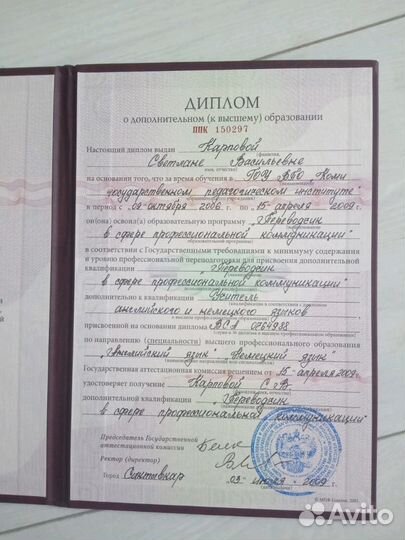 ДИПЛОМ
о дополнительном (к высшему) образовании
ППК 150297
Настоящий диплом выдан Карповой
(фамилия,
Светлане Васильевне
имя, отчество)
на основании того, что за время обучения в ГОУ ВПО "Коми
государственном педагогическом институте"
в период с 02 октября 2006 г. по 15 апреля 2009 г.
он(она) освоил(а) образовательную программу "Переводчик
в сфере профессиональной коммуникации"
в соответствии с Государственными требованиями к минимуму содержания
и уровню профессиональной переподготовки для присвоения дополнительной
квалификации "Переводчик
в сфере профессиональной коммуникации"
дополнительно к квалификации Учитель
английского и немецкого языков
присвоенной на основании диплома ВСА 0264988
по направлению (специальности) высшего профессионального образования
"Английский язык" "Немецкий язык"
Государственная аттестационная комиссия решением от 15 апреля 2009 г.
удостоверяет получение Карповой С.В.
дополнительной квалификации "Переводчик
в сфере профессиональной коммуникации"
Председатель Государственной
аттестационной комиссии
Ректор (директор)
Город Сыктывкар 03 июля 2009 г.
Avito